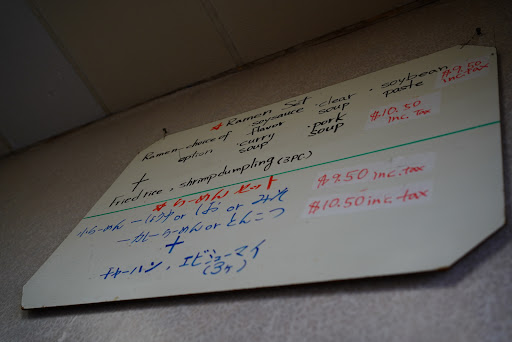 * Ramen Set
Ramen-choice of soysauce flavor · clear soup · soybean paste $9.50 inc.tax
option · curry soup · pork soup $10.50 inc. Tax
+
Fried rice, shrimp dumpling (3PC)
* らーめんセット
or しお or みそ $9.50 inc.tax
らーめん or とんこつ $10.50 inc.tax
+
チャーハン・エビシューマイ
(3ヶ)